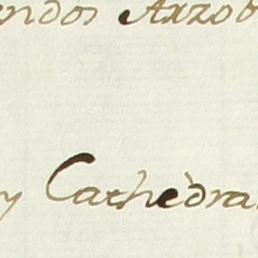 endos Arzob
y Cathèdra